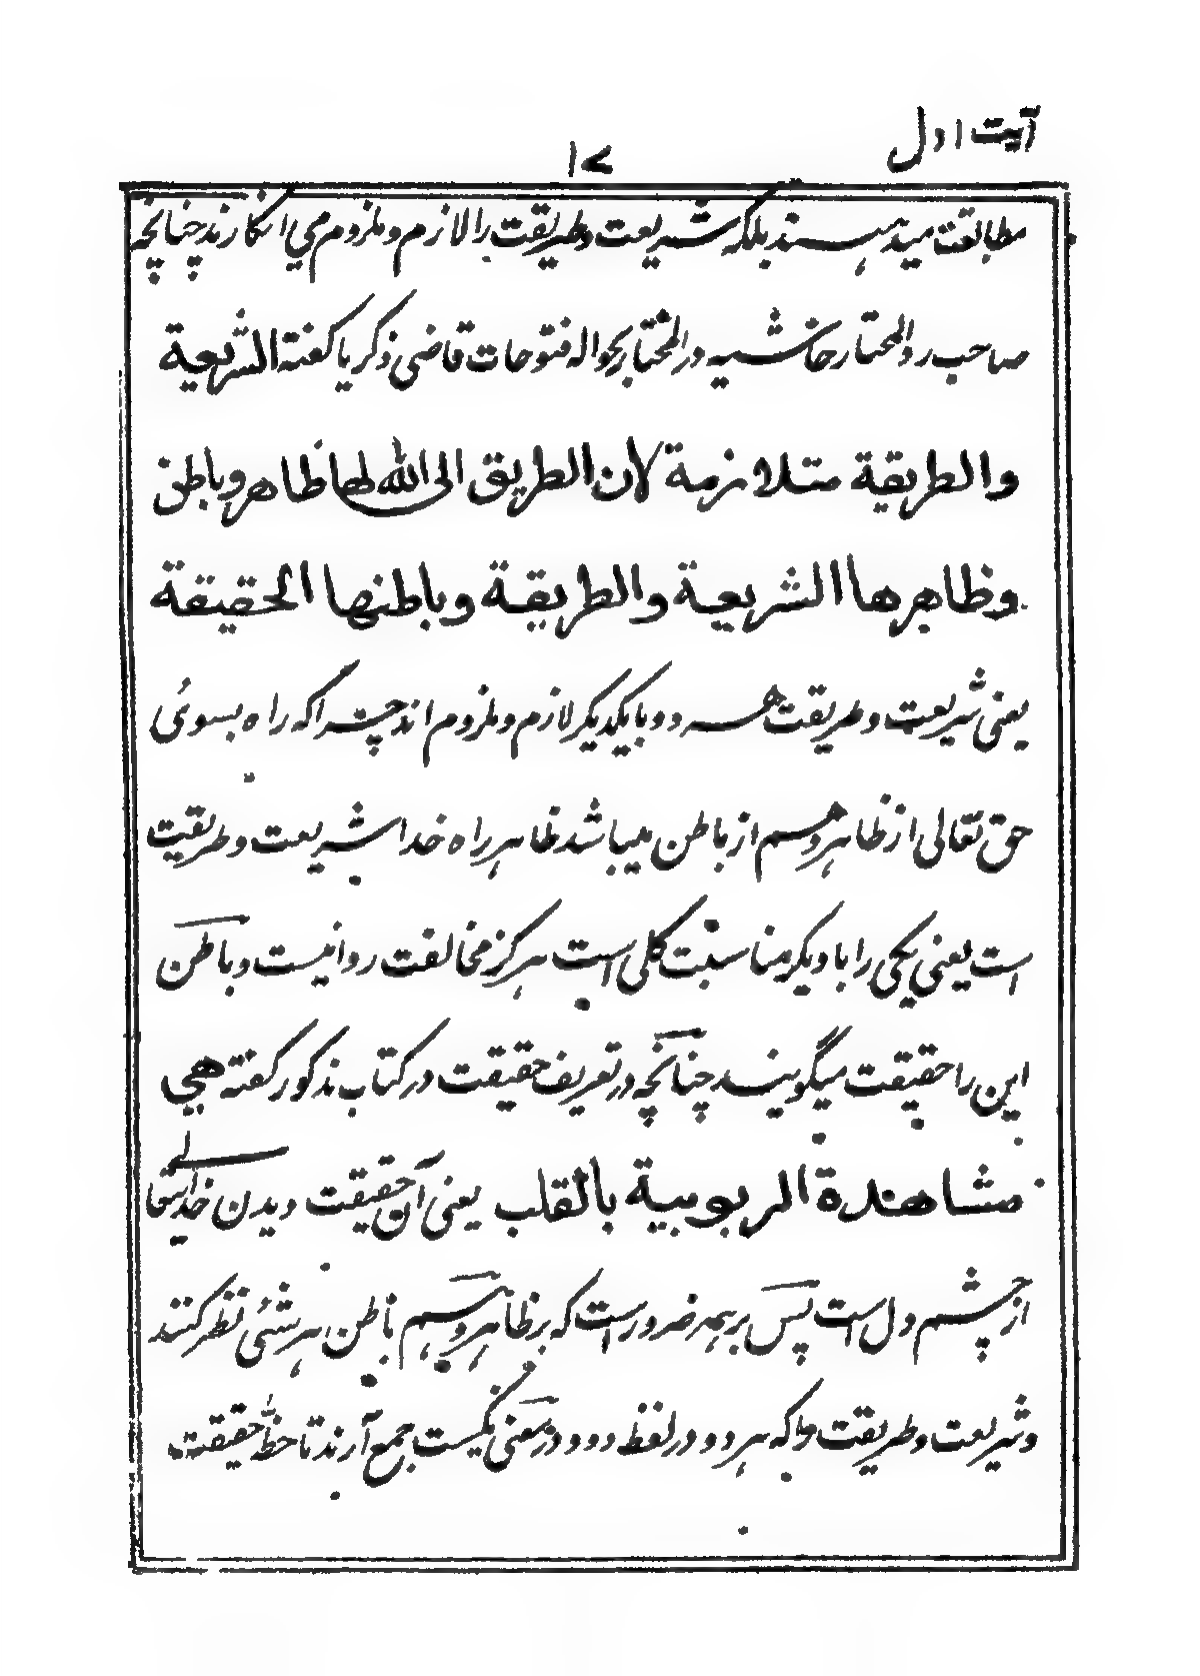 آیت اول
۱۷
مطابقت میدهند بلکه شریعت وطریقت را لازم وملزوم می انکارند چنانچه
صاحب ردالمحتار حاشیه درالمختار بحواله فتوحات قاضی ذکریا کفته الشریعیة
والطریقة متلازمة لان الطریق الی الله لها ظاهر وباطن
وظاهرها الشریعیة والطریقة وباطنها الحقیقة
یعنی شریعت وطریقت هر دو بایکدیکر لازم وملزوم اند چرا که راه بسوئ
حق تعالی از ظاهر وهم از باطن میباشد ظاهر راه خدا شریعت وطریقت
است یعنی یکی را با دیکر مناسبت کلی است هرکز مخالفت روا نیست وباطن
این را حقیقت میگویند چنانچه در تعریف حقیقت در کتاب مذکور کفته هی
مشاهدة الربوبیة بالقلب یعنی آن حقیقت دیدن خدایتعالے
از چشم دل است پس بر همه ضرور است که بر ظاهر وهم باطن هر شئی نظر کنند
وشریعت وطریقت را که هر دو در لفظ دو و در معنی یکیست جمع آرند تا حظ حقیقت